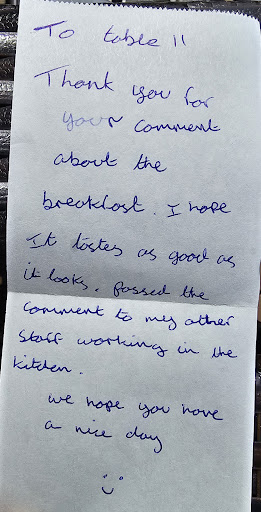 To table 11
Thank you for
your comment
about the
breakfast. I hope
It tastes as good as
it looks. passed the
comment to my other
staff working in the
kitchen.
we hope you have
a nice day
:)